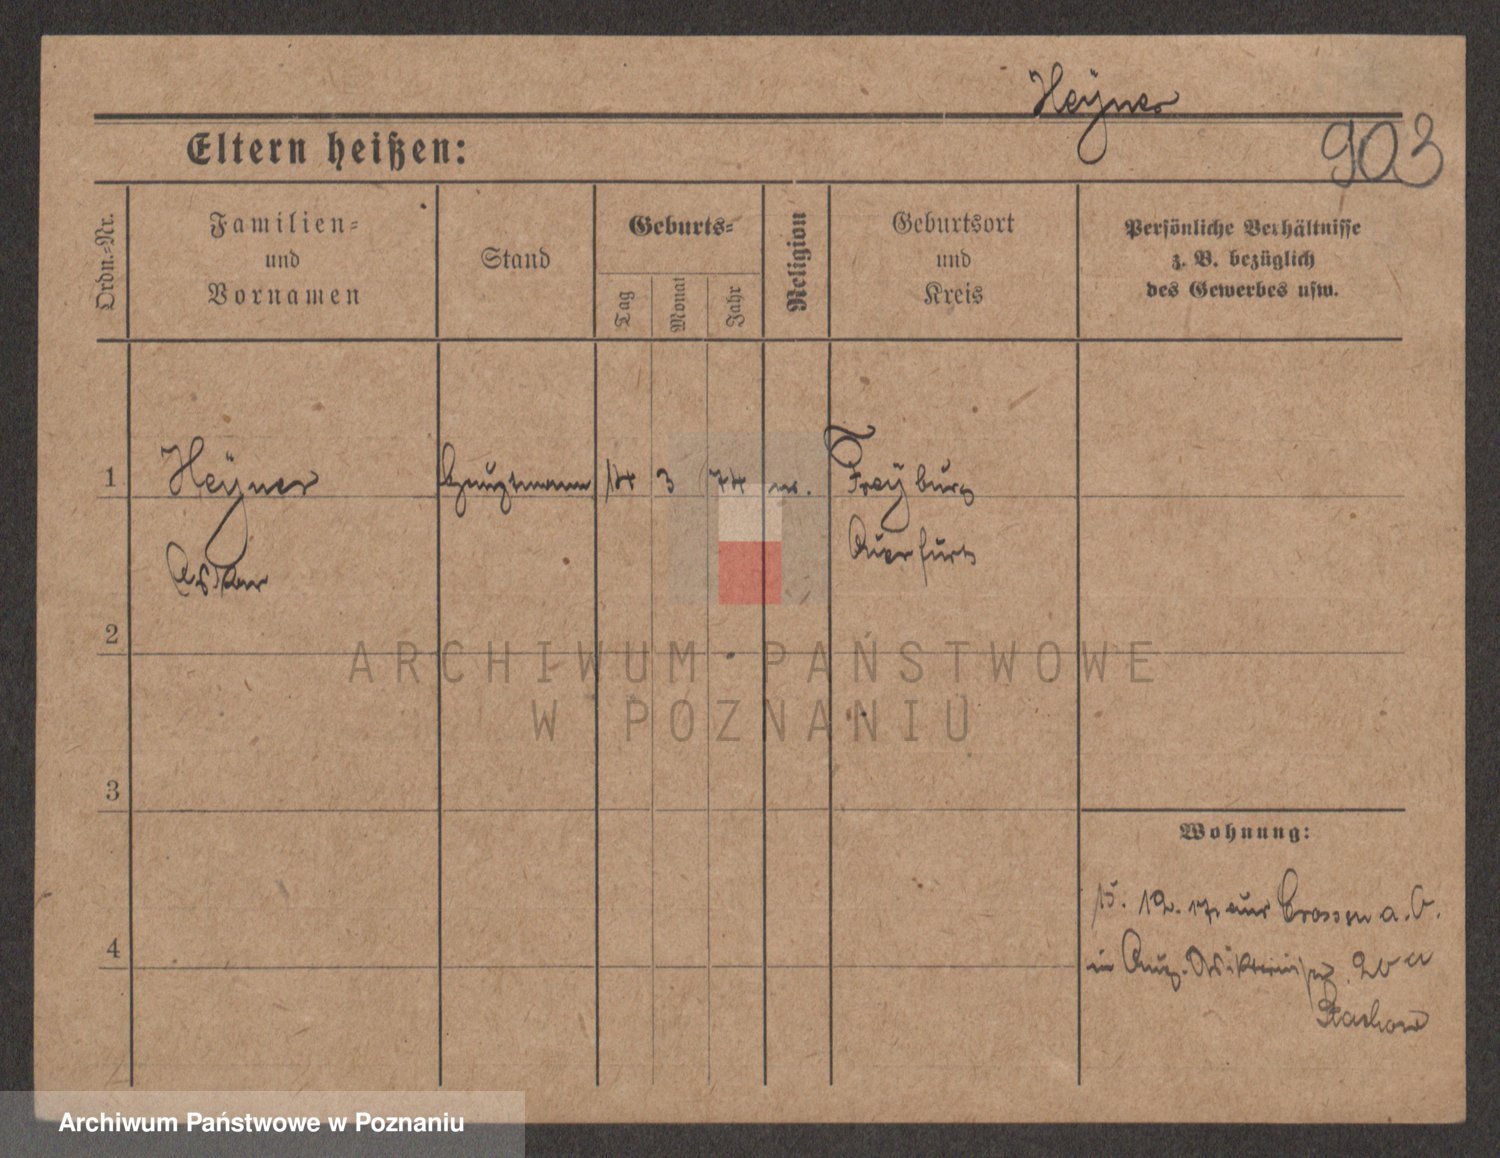 Heÿner
903
Eltern heißen:
Ordn.-Nr.
Familien-
und
Vornamen
Stand
Geburts-
Tag
Monat
Jahr
Religion
Geburtsort
und
Kreis
Persönliche Verhältnisse
z. B. bezüglich
des Gewerbes usw.
1
Heÿner
Oskar
Hauptmann
14
3
74
ev.
Freÿburg
Querfurt
2
ARCHIWUM PAŃSTWOWE
W POZNANIU
3
4
Wohnung:
15. 12. 17 aus Crossen a. O.
in Aug. Viktoriastr. 20 a
Archiwum Państwowe w Poznaniu